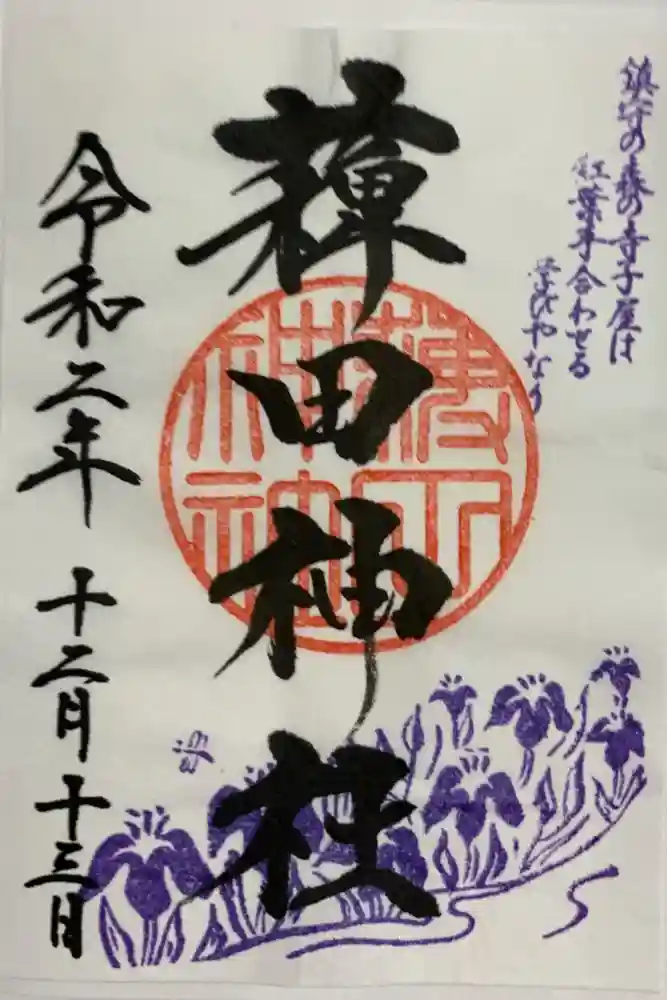 鎮守の森の寺子屋は
紅葉手合わせる
学びやなり
薭田神社
令和二年 十二月 十三日